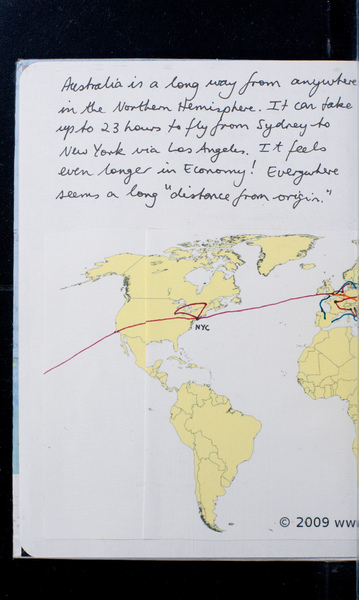 Australia is a long way from anywhere
in the Northern Hemisphere. It can take
up to 23 hours to fly from Sydney to
New York via Los Angeles. It feels
even longer in Economy! Everywhere
seems a long "distance from origin."
NYC
© 2009 www